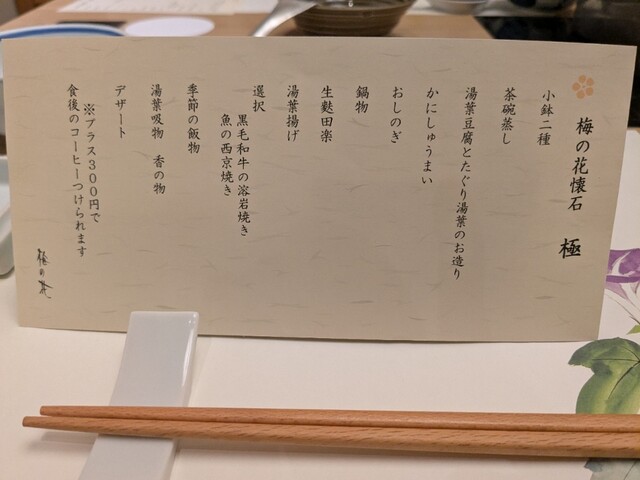 梅の花懐石　極
小鉢二種
茶碗蒸し
湯葉豆腐とたぐり湯葉のお造り
かにしゅうまい
おしのぎ
鍋物
生麩田楽
湯葉揚げ
選択
黒毛和牛の溶岩焼き
魚の西京焼き
季節の飯物
湯葉吸物　香の物
デザート
※プラス３００円で
食後のコーヒーつけられます
梅の花